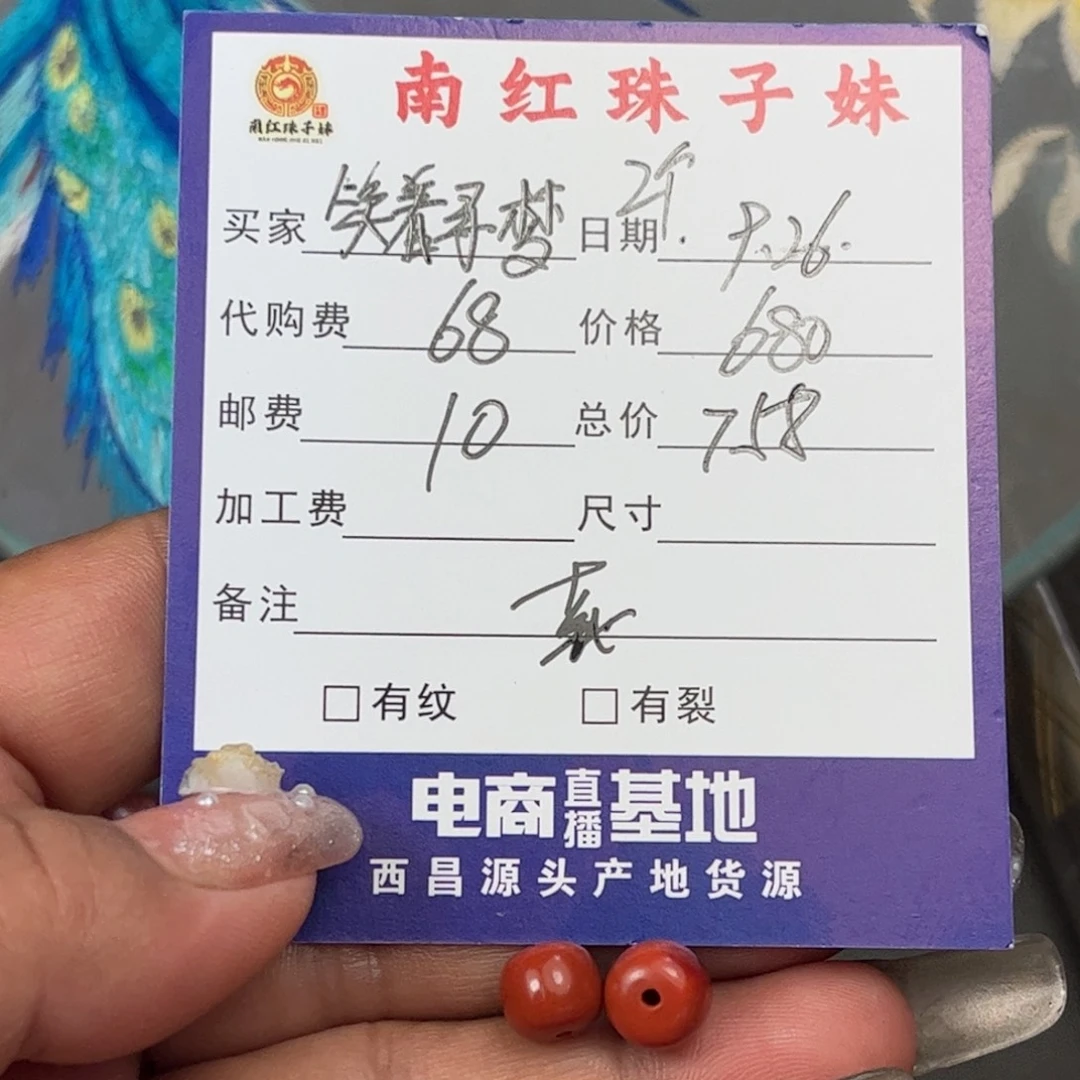 南红珠子妹
南红珠子妹
买家 笑着寻梦 日期 9.26.
代购费 68 价格 680
邮费 10 总价 758
加工费 尺寸
备注
有纹 有裂
电商直播基地
西昌源头产地货源